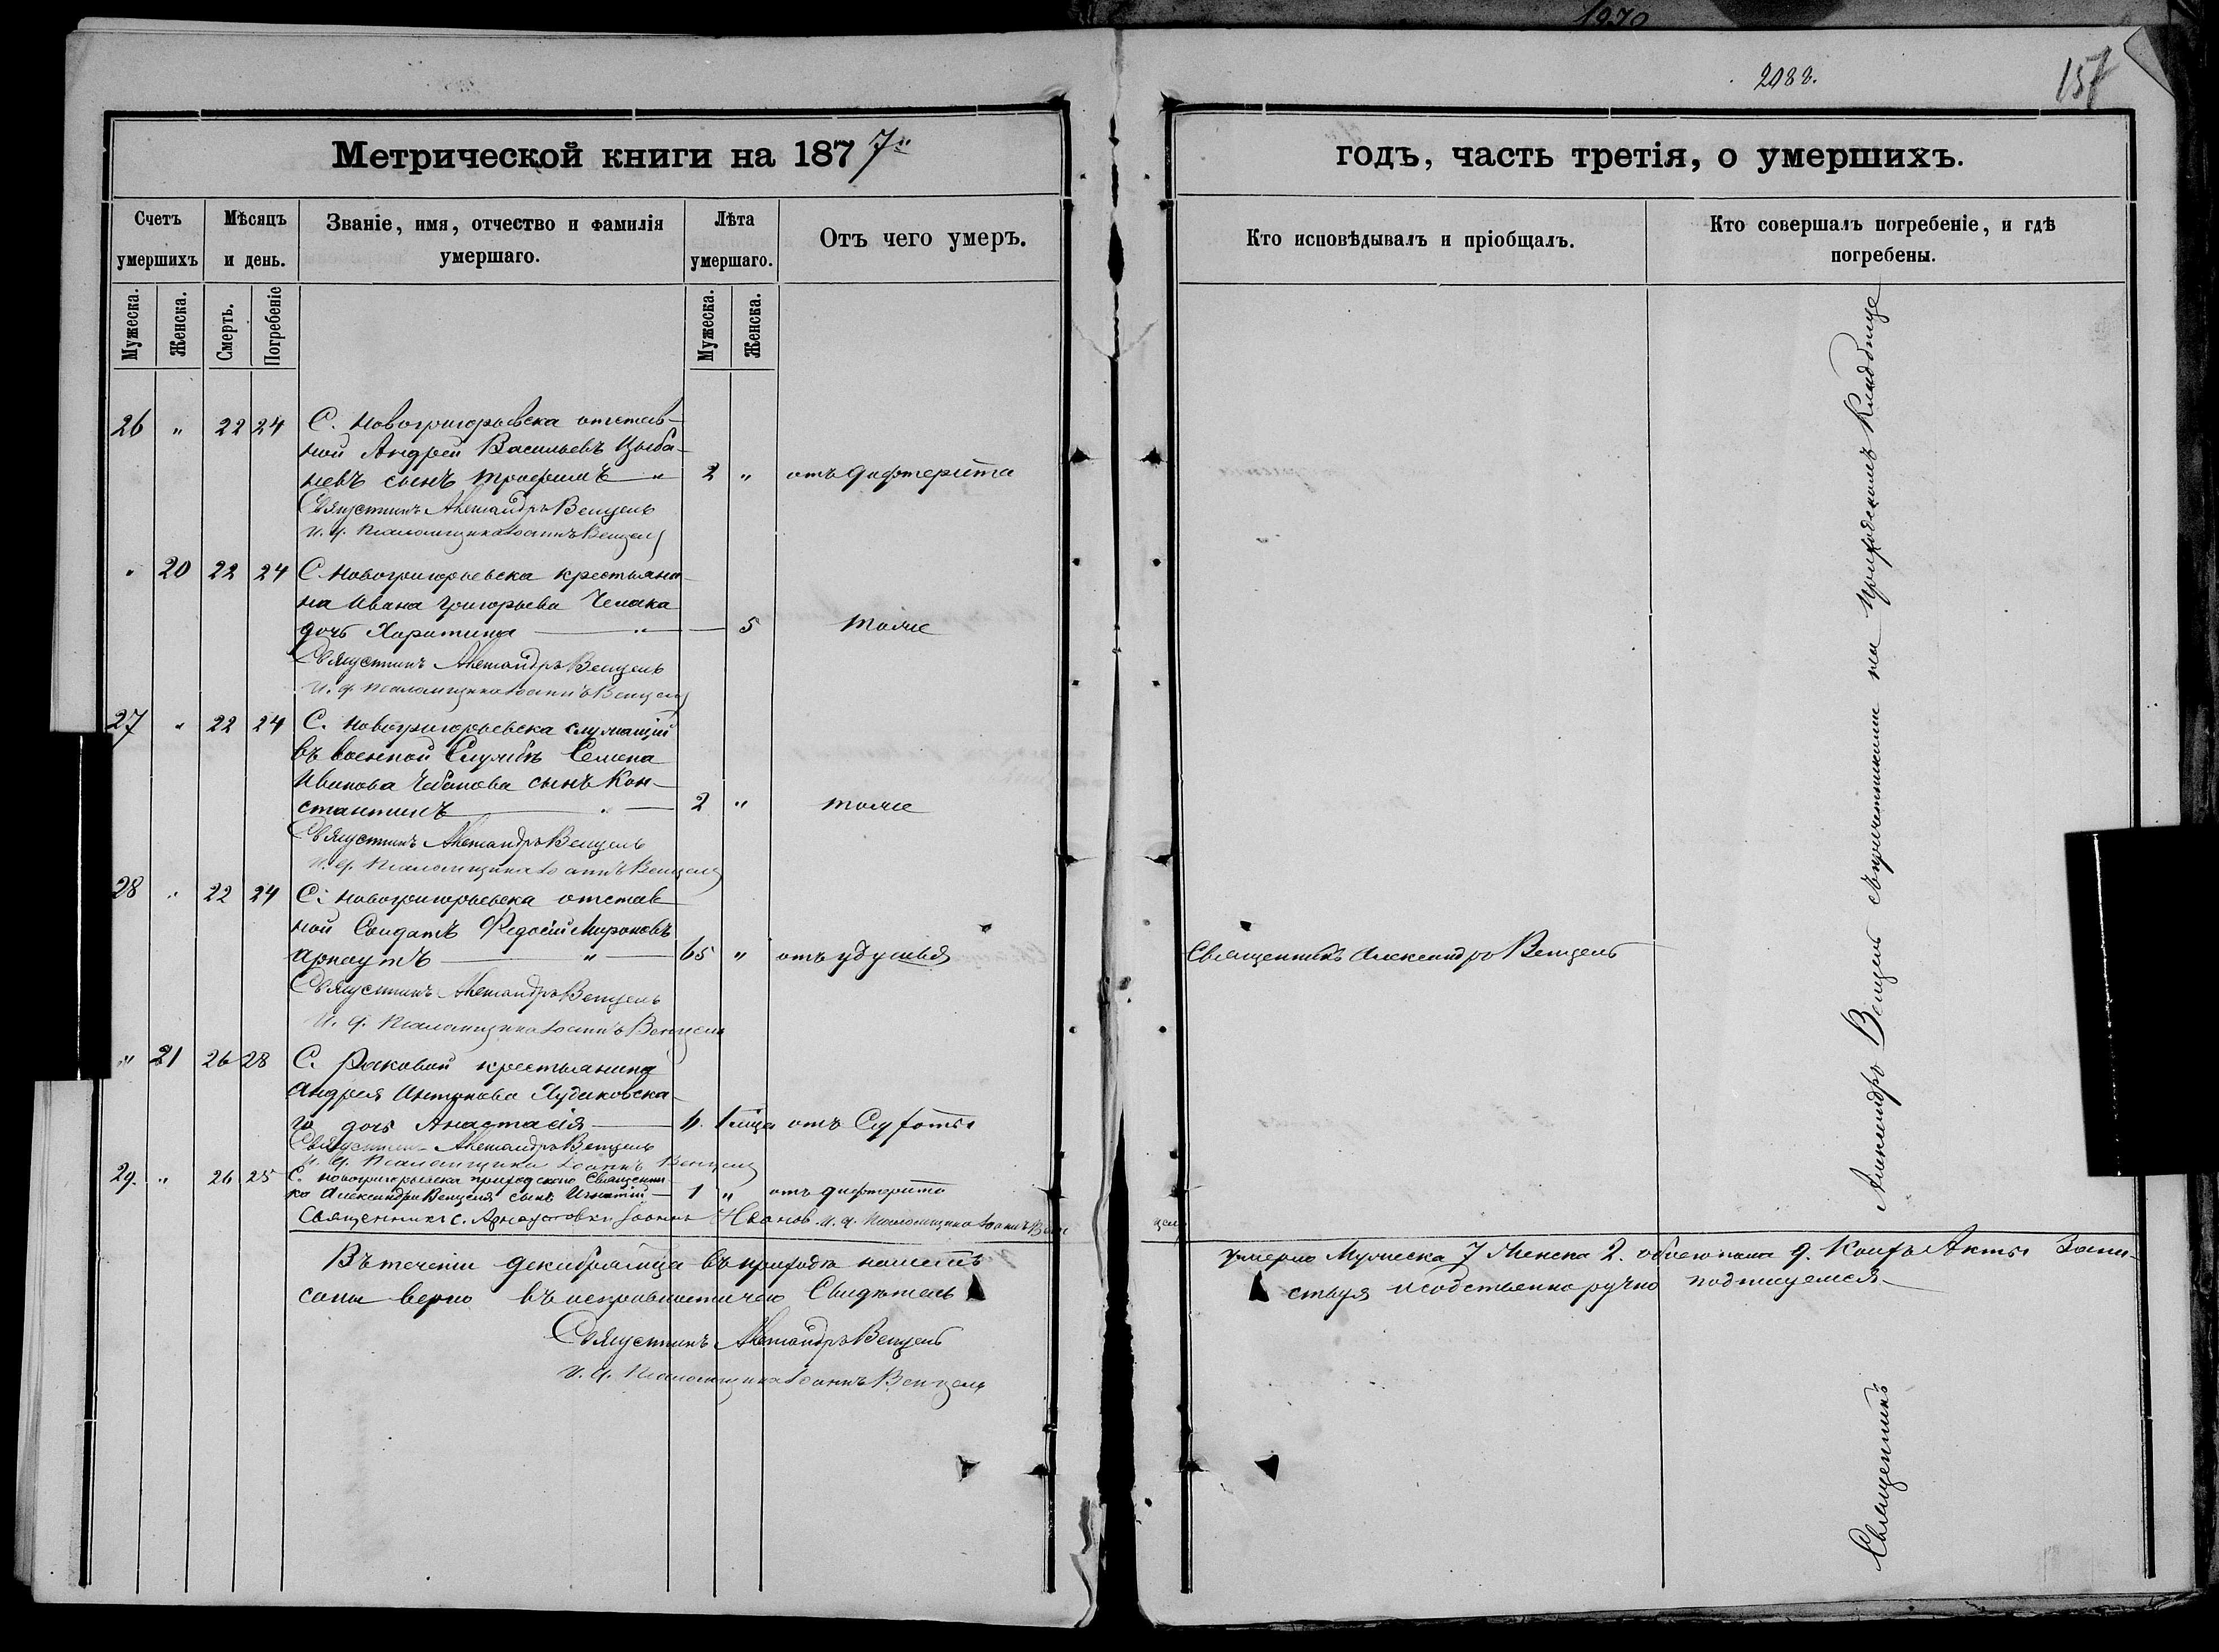 1970
2088.
157
Метрической книги на 1877й
годъ, часть третія, о умершихъ.
Счетъ умершихъ
Мѣсяцъ и день.
Званіе, имя, отчество и фамилія умершаго.
Лѣта умершаго.
Отъ чего умеръ.
Кто исповѣдывалъ и пріобщалъ.
Кто совершалъ погребеніе, и гдѣ погребены.
Мужеска. Женска. Смерть. Погребеніе Мужеска. Женска.
26 " 22 24 С. Новогригорьевска отстав-
ной Андрей Васильевъ Цыба-
невъ сынъ Трофимъ " 2 " отъ дифтерита
Священникъ Александръ Венцель
И. д. Псаломщика Іоаннъ Венцель
" 20 22 24 С. Новогригорьевска крестьяни-
на Ивана Григорьева Чемака
дочь Харитина " 5 тоже
Священникъ Александръ Венцель
И. д. Псаломщика Іоаннъ Венцель
27 " 22 24 С. Новогригорьевска служащій
въ военной Службѣ Семена
Иванова Чебанова сынъ Кон-
стантинъ 2 " тоже
Священникъ Александръ Венцель
И. д. Псаломщика Іоаннъ Венцель
28 " 22 24 С. Новогригорьевска отстав
ной Солдатъ Федосій Мироновъ
Арнаутъ " 65 " отъ удушья Священникъ Александръ Венцель
Священникъ Александръ Венцель
И. д. Псаломщика Іоаннъ Венцель
" 21 26 28 С. Раковой крестьянина
Андрея Антонова Худаковска-
го дочь Анастасія отъ Сухоты
Священникъ Александръ Венцель
И. д. Псаломщика Іоаннъ Венцель
29. " 26 25 С. Новогригорьевска приходскаго Священни-
ка Александра Венцеля сынъ Игнатій 1 " отъ дифтерита
Священникъ с. Арнаутовки Іоаннъ Иванов. И. д. Псаломщика Іоаннъ Вен
цель
Въ теченіи декабря мца въ приходѣ нашемъ умерло Мужеска 7 Женска 2. обоего пола 9. Акты Запи-
саны верно въ Свидѣтель ствуя и собственноручно подписуемся
Священникъ Александръ Венцель
И. д. Псаломщика Іоаннъ Венцель
Священникъ Александръ Венцель съ причетниками на приходскомъ Кладбище